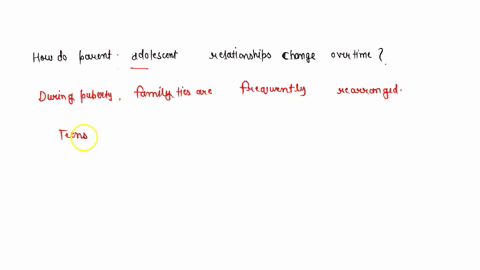 How do parent. adolescent relationships change over time?
During puberty, family ties are frequently rearranged.
Teens